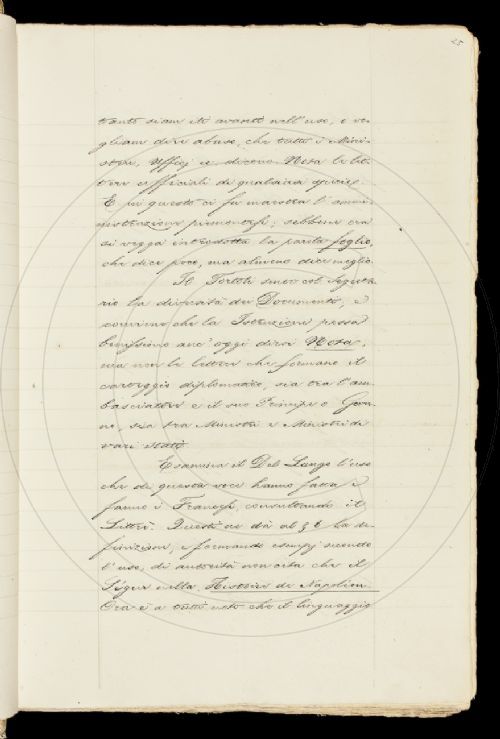 25
tanto siam iti avanti nell'uso, e vo-
gliam dire abuso, che tutti i Mini-
steri, Uffizj ec. dicono Nota le let-
tere officiali di qualsiasi specie.
E in questo ci fu maestra l'ammi-
nistrazione piemontese; sebbene ora
si vegga introdotta la parola foglio,
che dice poco, ma almeno dice meglio.
Il Tortoli sino col Segreta-
rio la difesa dei Documenti, e
conviene che la Istruzione possa
benissimo anc'oggi dirsi Nota,
ma non le lettere che formano il
carteggio diplomatico, sia tra l'am-
basciatore e il suo Principe o Gover-
no, sia tra Ministri e Ministri di
vari stati.
Esamina il Del Lungo l'uso
che di questa voce hanno fatto e
fanno i Francesi, consultando il
Littré. Questi ne dà al § 8 la de-
finizione, e formando esempj secondo
l'uso, di autorità non cita che il
Ségur nella Histoire de Napoléon.
Ora è a tutti noto che il linguaggio